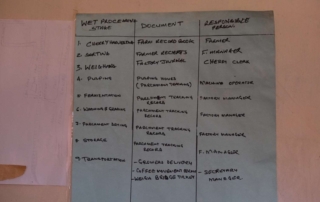 WET PROCESSING STAGE
DOCUMENT
RESPONSIBLE PERSON
1. CHERRY HARVESTING
FARM RECORD BOOK
FARMER
2. SORTING
FARMER RECORDS
F. MANAGER
3. WEIGHING
FACTORY JOURNAL
CHERRY CLERK
4. PULPING
PULPING
MACHINE OPERATOR
5. FERMENTATION
PARCHMENT TRACKING RECORD
FACTORY MANAGER
6. WASHING &
PARCHMENT TRACKING RECORD
FACTORY MANAGER
7. PARCHMENT DRYING
PARCHMENT TRACKING RECORD
FACTORY MANAGER
8. STORAGE
PARCHMENT TRACKING RECORD
F. MANAGER
9. TRANSPORTATION
- GROWERS DELIVERY
- COFFEE MOVEMENT
- WEIGH BRIDGE TICKET
- SECRETARY MANAGER